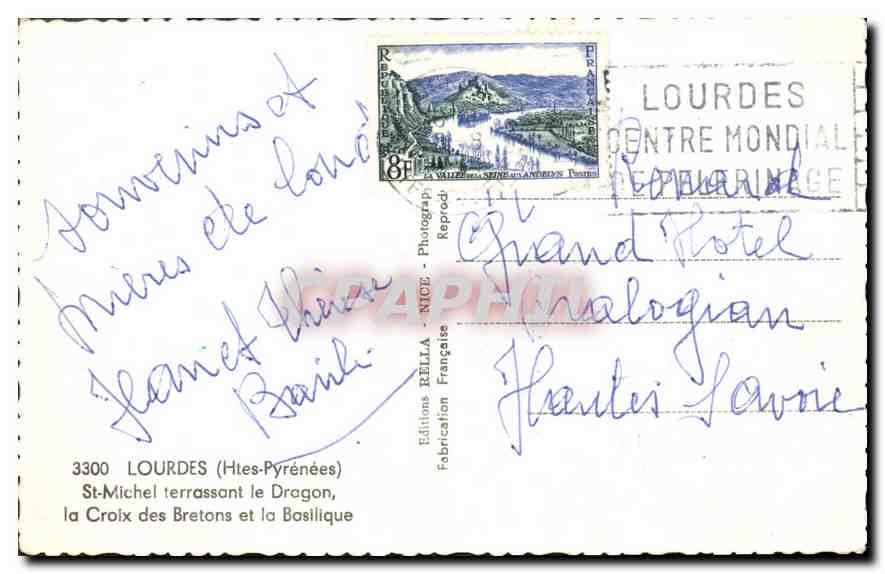 souvenirs et
prières de tous
Jean et Thérèse
3300 LOURDES (Htes-Pyrénées)
St-Michel terrassant le Dragon,
la Croix des Bretons et la Basilique
Editions RELLA - NICE - Photograp
Fabrication Française Reprod
REPUBLIQUE FRANÇAISE
8F
LA VALLÉE DE LA SEINE AUX ANDELYS POSTES
LOURDES
CENTRE MONDIAL
DE PELERINAGE
Grand Hotel
Hautes Savoie
CPAPHIL